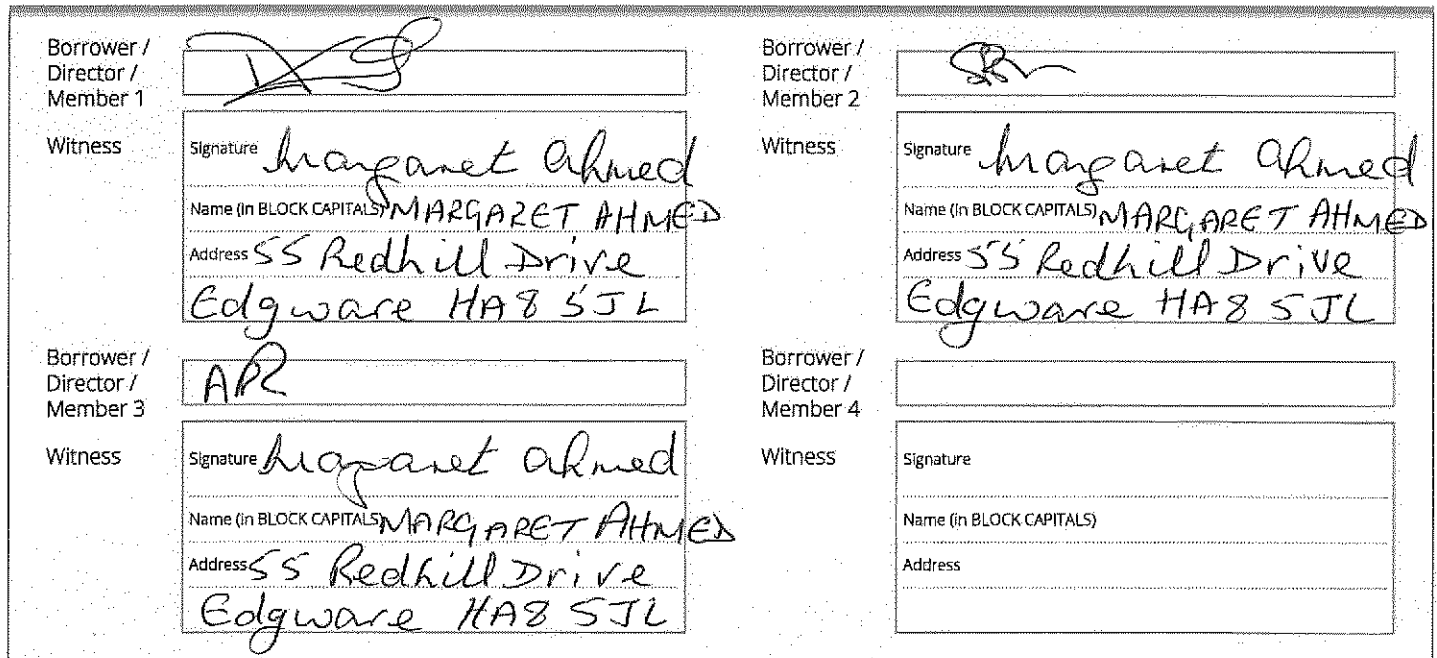 Borrower /
Director /
Member 1
Witness
Signature Margaret Ahmed
Name (in BLOCK CAPITALS) MARGARET AHMED
Address 55 Redhill Drive
Edgware HA8 5JL
Borrower /
Director /
Member 2
Witness
Signature Margaret Ahmed
Name (in BLOCK CAPITALS) MARGARET AHMED
Address 55 Redhill Drive
Edgware HA8 5JL
Borrower /
Director /
Member 3
APR
Witness
Signature Margaret Ahmed
Name (in BLOCK CAPITALS) MARGARET AHMED
Address 55 Redhill Drive
Edgware HA8 5JL
Borrower /
Director /
Member 4
Witness
Signature
Name (in BLOCK CAPITALS)
Address